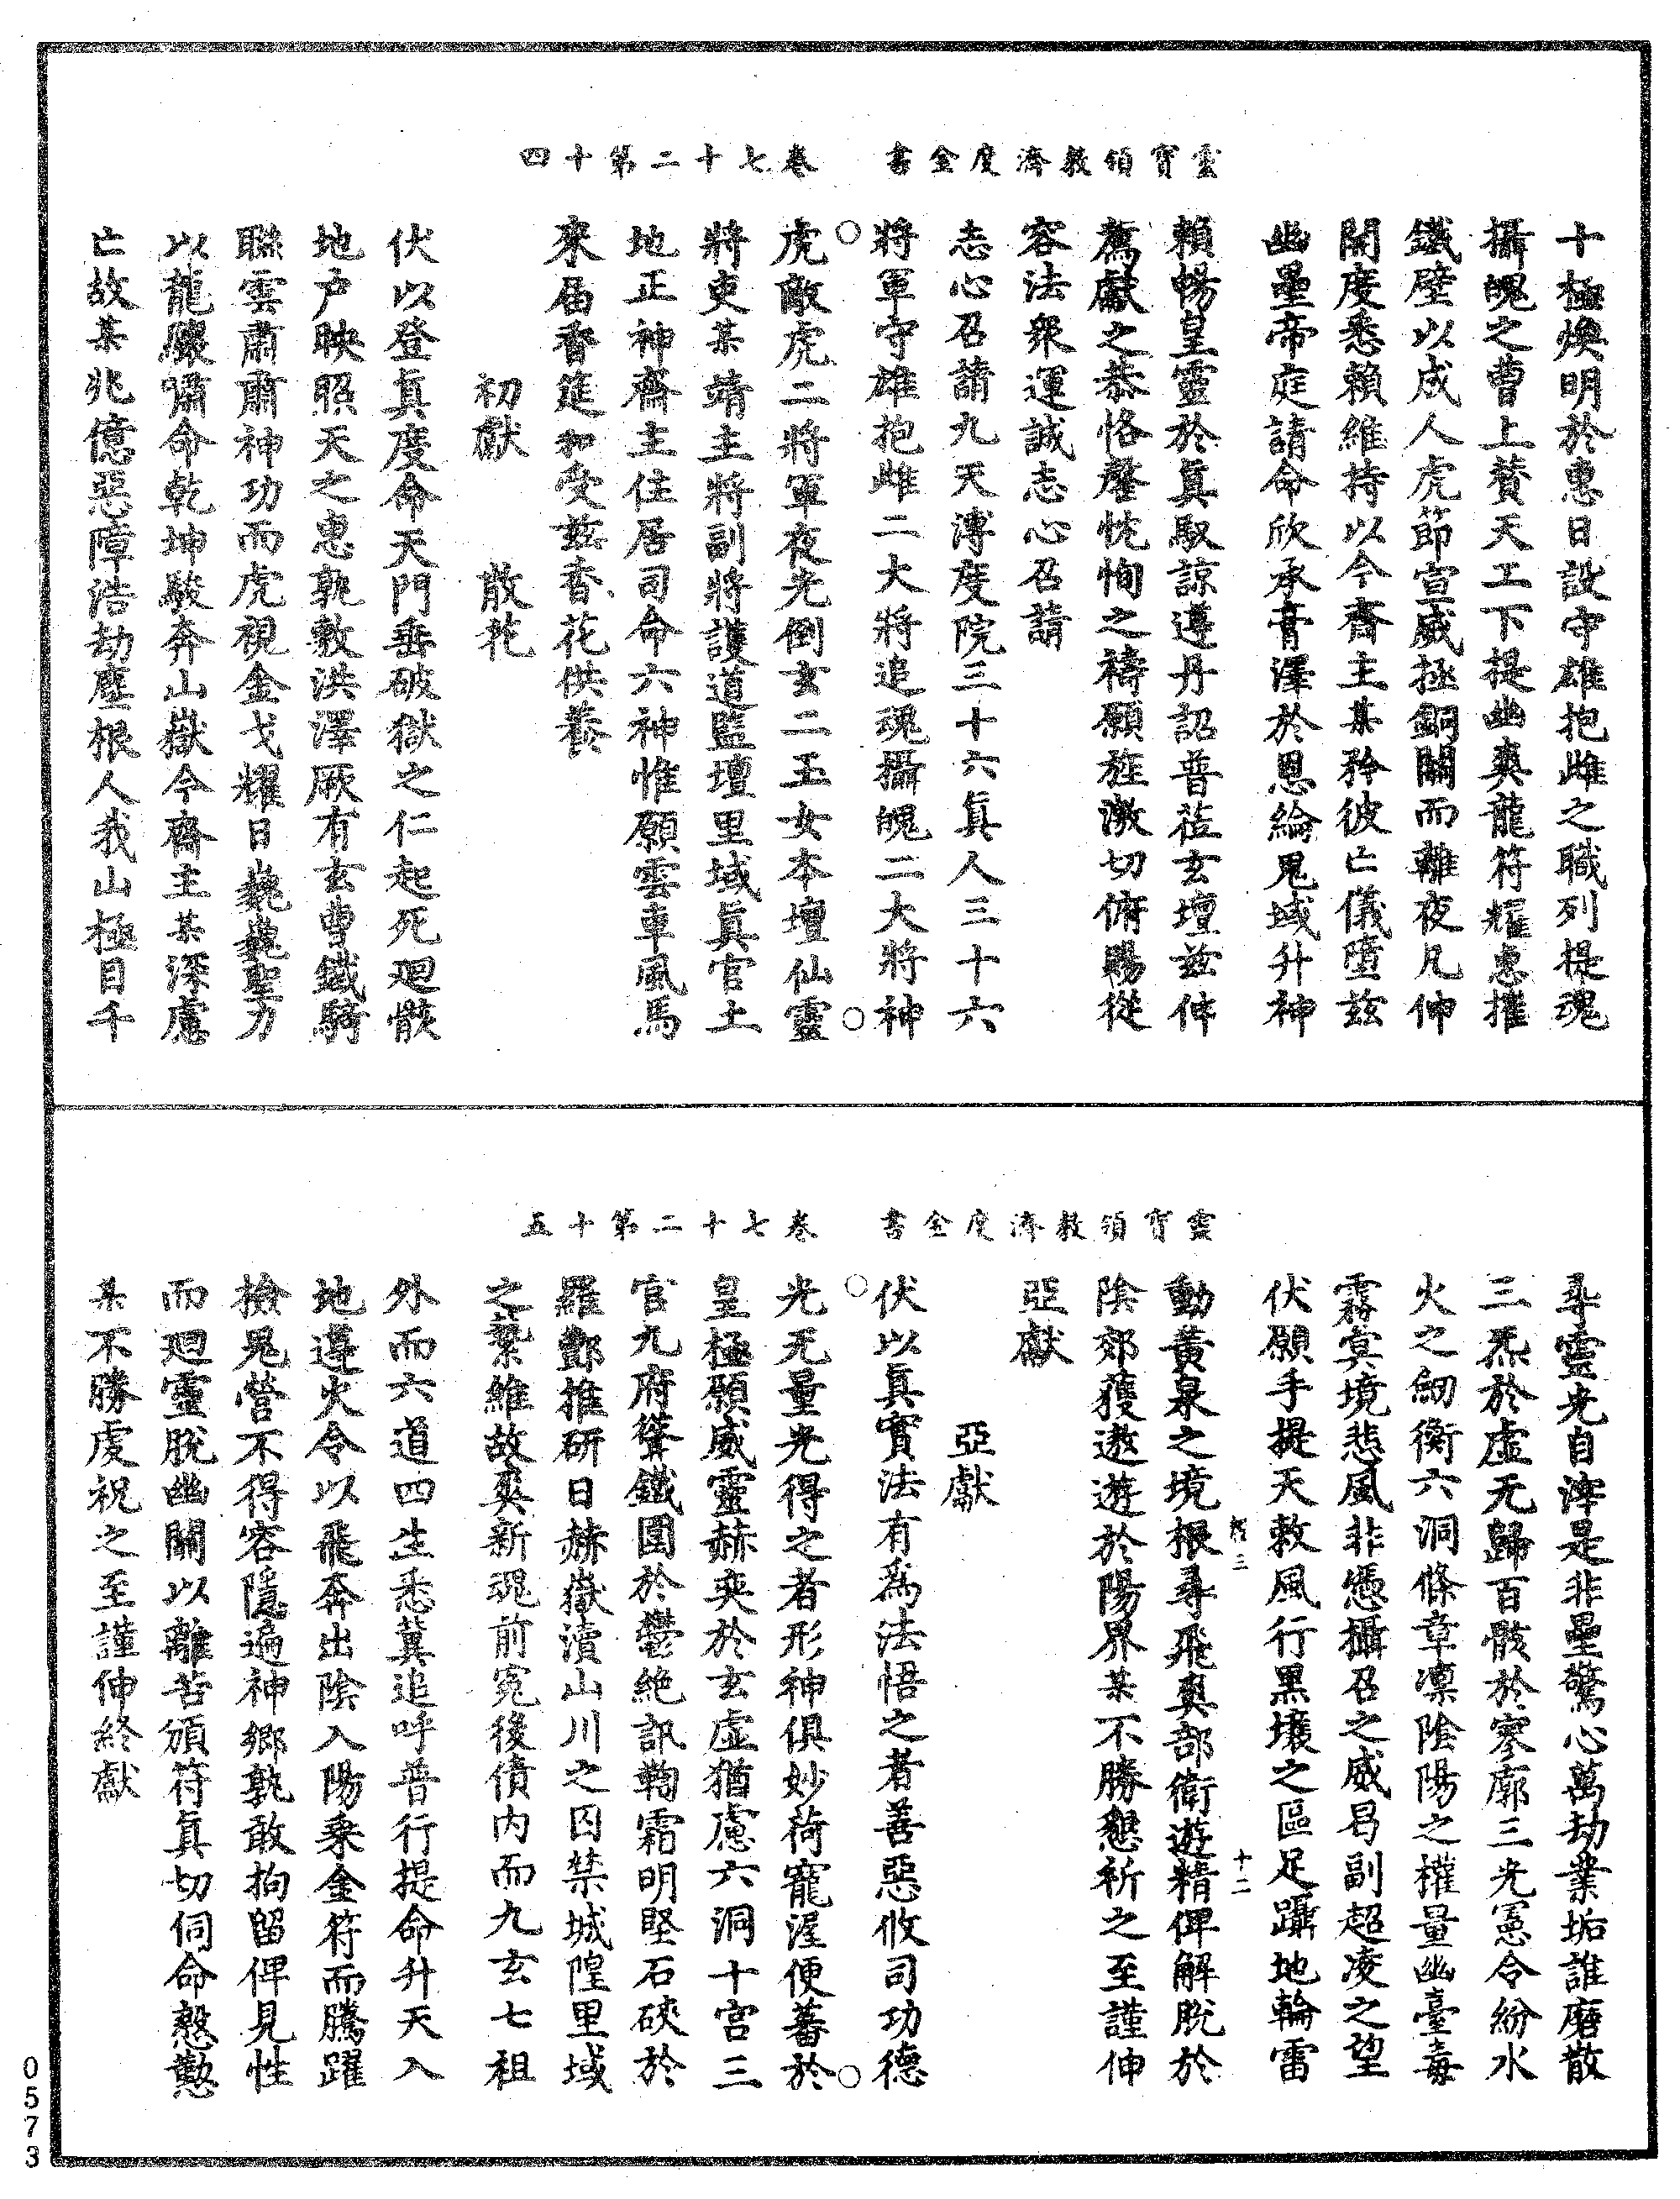 靈寶領教濟度金書　卷七十二第十四
十極煥明於惠日設守雄抱雌之職列提魂
攝魄之曹上贊天工下提幽爽龍符耀惠摧
鐵壁以成人虎節宣威拯銅關而離夜凡伸
開度悉賴維持以今齋主某矜彼亡儀墮茲
幽壘帝庭請命欣承膏澤於恩綸鬼域升神
賴暢皇靈於眞馭諒遵丹詔普蒞玄壇茲伸
薦獻之恭恪罄忱恂之禱願旌激切俯賜從
容法衆運誠志心召請
志心召請九天溥度院三十六眞人三十六
將軍守雄抱雌二大將追魂攝魄二大將神
虎敵虎二將軍夜光倒玄二玉女本壇仙靈
將吏某靖主將副將護道監壇里域眞官土
地正神齋主住居司命六神惟願雲車風馬
來届香筵和受兹香花供養
初獻　散花
伏以登眞度命天門垂破獄之仁起死廻骸
地户映照天之惠孰敷洪澤厥有玄曹鐵騎
聯雲肅肅神功而虎視金戈耀日巍巍聖力
以龍驤嘯命乾坤駿奔山嶽今齋主某深慮
亡故某兆億惡障浩劫塵根人我山極目千
靈寶領教濟度金書　卷七十二第十五
尋靈光自滓是非壘驚心萬劫業垢誰磨散
三炁於虚无歸百骸於寥廓三光憲令紛水
火之劒衡六洞條章凛陰陽之權量幽臺毒
霧冥境悲風非憑攝召之威曷副超凌之望
伏願手提天敕風行黑壤之區足躡地輪雷
動黃泉之境根尋飛爽部衛遊精俾解脫於
陰郊獲遨遊於陽界某不勝懇祈之至謹伸
亞獻
亞獻
伏以眞實法有爲法悟之者善惡攸司功德
光无量光得之者形神俱妙荷寵渥便蕃於
皇極願威靈赫奕於玄虚猶慮六洞十宫三
官九府聳鐵圍於鬱絶訊鞫霜明堅石硤於
羅酆推研日赫嶽瀆山川之囚禁城隍里域
之縶維故爽新魂前寃後債内而九玄七祖
外而六道四生悉冀追呼普行提命升天入
地遵火令以飛奔出陰入陽乘金符而騰躍
撿鬼營不得容隱遍神鄉孰敢拘留俾見性
而廻靈脫幽關以離苦頒符眞切伺命慇懃
某不勝虔祝之至謹伸終獻
十二
0573